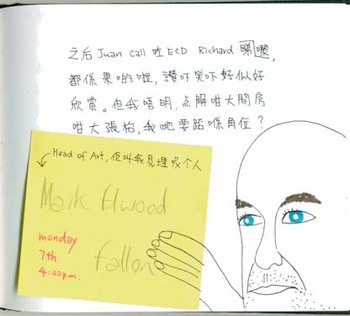 之后Juan call 咗ECD Richard 睇嘢,
都係果啲啦,讚吓笑吓好似好
欣赏。但我唔明,点解咁大間房
咁大張枱,我哋要踎喺角位?
Head of Art, 佢叫我見埋呢个人
Mark Elwood
Fallon
monday
7th
4:00pm.